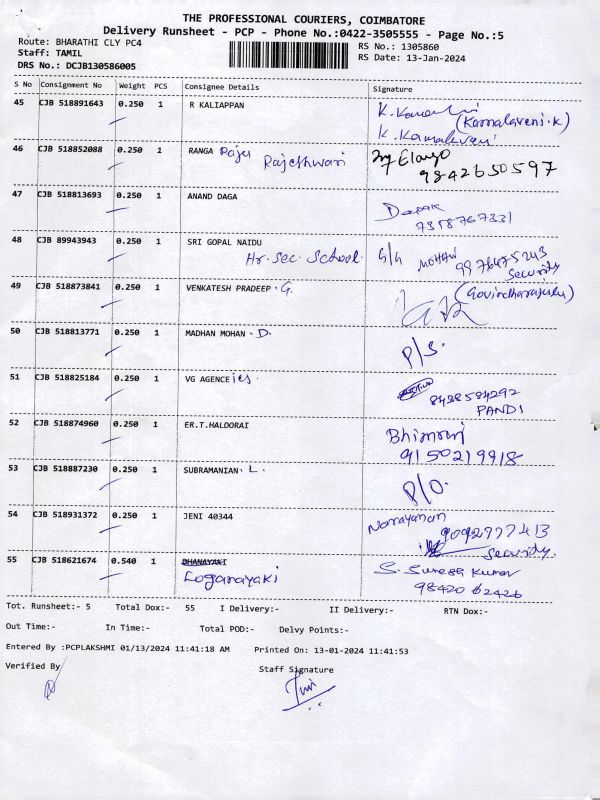 THE PROFESSIONAL COURIERS, COIMBATORE
Delivery Runsheet - PCP - Phone No.:0422-3505555 - Page No.:5
Route: BHARATHI CLY PC4 RS No.: 1305860
Staff: TAMIL RS Date: 13-Jan-2024
DRS No.: DCJB130586005
S No Consignment No Weight PCS Consignee Details Signature
45 CJB 518891643 0.250 1 R KALIAPPAN
(Kamalaveni.K)
K. Kamalaveni
46 CJB 518852088 0.250 1 RANGA Raju Rajeshwari Elango
9842650597
47 CJB 518813693 0.250 1 ANAND DAGA Deepak
7358767331
48 CJB 89943943 0.250 1 SRI GOPAL NAIDU
Hr. Sec. School. S/G MOHAN 9976475243
Security
49 CJB 518873841 0.250 1 VENKATESH PRADEEP . G. (Govindharajulu)
50 CJB 518813771 0.250 1 MADHAN MOHAN . D.
P/S.
51 CJB 518825184 0.250 1 VG AGENCEies. 8438584292
PANDI
52 CJB 518874960 0.250 1 ER.T.HALDORAI
9150219918
53 CJB 518887230 0.250 1 SUBRAMANIAN . L.
P/O.
54 CJB 518931372 0.250 1 JENI 40344 Narayanan 9092977413
Security.
55 CJB 518621674 0.540 1 DHANAYAKI
Loganayaki S. Suresh Kumar
98420 62426
Tot. Runsheet:- 5 Total Dox:- 55 I Delivery:- II Delivery:- RTN Dox:-
Out Time:- In Time:- Total POD:- Delvy Points:-
Entered By :PCPLAKSHMI 01/13/2024 11:41:18 AM Printed On: 13-01-2024 11:41:53
Verified By Staff Signature